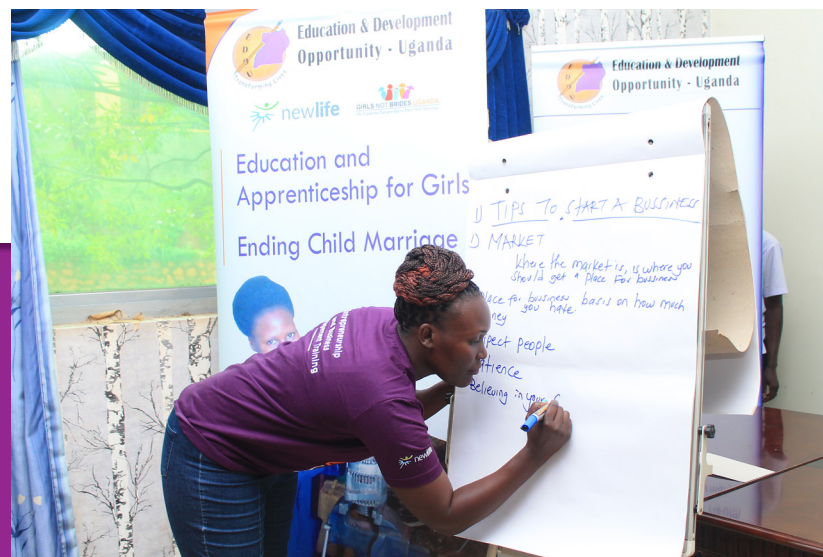 Education & Development
Opportunity - Uganda
EDOU
Transforming Lives
newlife
GIRLS NOT BRIDES UGANDA
Education and
Apprenticeship for Girls
Ending Child Marriage
Education & Development
Opportunity - Uganda
1) TIPS TO START A BUSSINESS
1) MARKET
Where the market is, is where you
should get a place for bussiness
place for bussiness basis on how much
you have
pect people
atience
Believing in your
Training
new